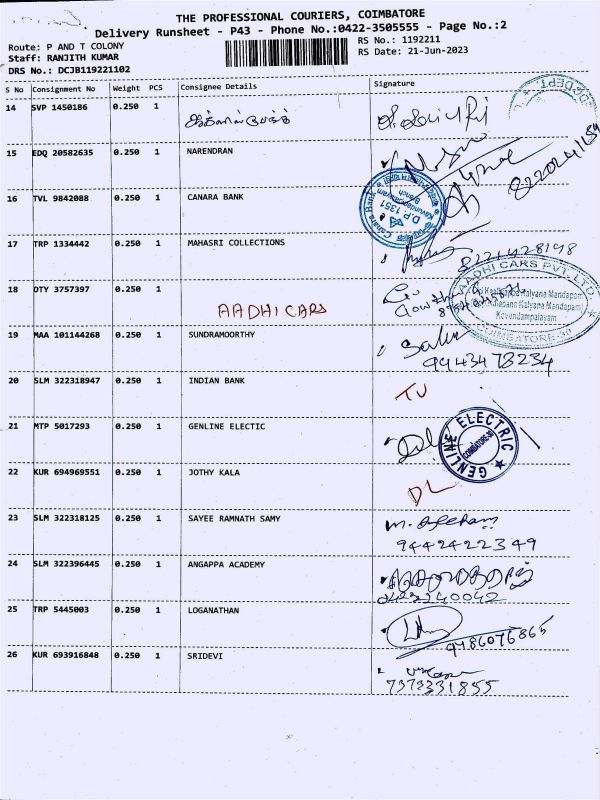 THE PROFESSIONAL COURIERS, COIMBATORE
Delivery Runsheet - P43 - Phone No.:0422-3505555 - Page No.:2
Route: P AND T COLONY
RS No.: 1192211
Staff: RANJITH KUMAR
RS Date: 21-Jun-2023
DRS No.: DCJB119221102
S No Consignment No Weight PCS Consignee Details Signature
14 SVP 1450186 0.250 1
15 EDQ 20582635 0.250 1 NARENDRAN
16 TVL 9842088 0.250 1 CANARA BANK
Canara Bank
D.P 1351
Branch
17 TRP 1334442 0.250 1 MAHASRI COLLECTIONS
8221428198
18 DTY 3757397 0.250 1 AADHI CARS
AADHI CARS PVT. LTD.
Kalyana Mandapam
Kalyana Mandapam
Kovundampalayam
COIMBATORE-30
19 MAA 101144268 0.250 1 SUNDRAMOORTHY
9943478234
20 SLM 322318947 0.250 1 INDIAN BANK
21 MTP 5017293 0.250 1 GENLINE ELECTIC
GENLINE ELECTRIC
COIMBATORE-30
22 KUR 694969551 0.250 1 JOTHY KALA DL
23 SLM 322318125 0.250 1 SAYEE RAMNATH SAMY
9442422349
24 SLM 322396445 0.250 1 ANGAPPA ACADEMY
25 TRP 5445003 0.250 1 LOGANATHAN
9786076865
26 KUR 693916848 0.250 1 SRIDEVI
7373331855